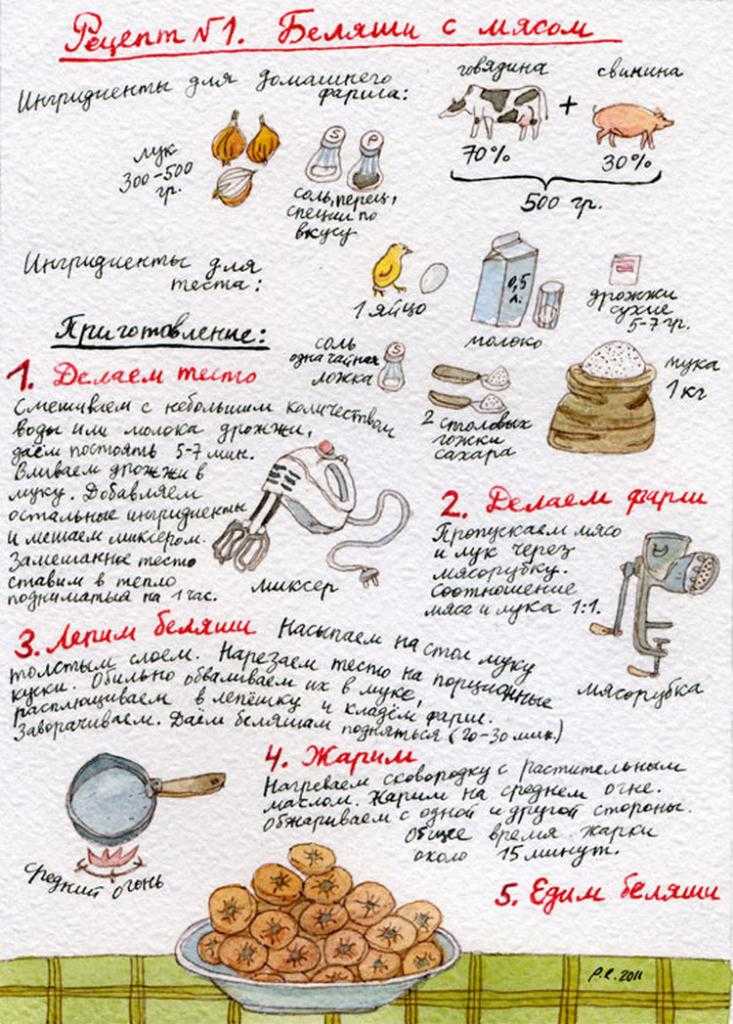 Рецепт №1. Беляши с мясом
Ингридиенты для домашнего
фарша:
говядина
+
свинина
70%
30%
500 гр.
лук
300-500
гр.
S
P
соль, перец,
специи по
вкусу
Ингридиенты для
теста:
1 яйцо
0,5
л.
молоко
дрожжи
сухие
5-7 гр.
соль
одна чайная
ложка
S
2 столовых
ложки
сахара
мука
1 кг
Приготовление:
1. Делаем тесто
Смешиваем с небольшим количеством
воды или молока дрожжи,
даём постоять 5-7 мин.
Вливаем дрожжи в
муку. Добавляем
остальные ингридиенты
и мешаем миксером.
Замешанное тесто
ставим в тепло
подниматься на 1 час.
миксер
2. Делаем фарш
Пропускаем мясо
и лук через
мясорубку.
Соотношение
мяса и лука 1:1.
мясорубка
3. Лепим беляши Насыпаем на стол муку
толстым слоем. Нарезаем тесто на порционные
куски. Обильно обваливаем их в муке,
расплющиваем в лепёшку и кладём фарш.
Заворачиваем. Даём беляшам подняться (20-30 мин.)
4. Жарим
Нагреваем сковородку с растительным
маслом. Жарим на среднем огне.
Обжариваем с одной и другой стороны.
Общее время жарки
около 15 минут.
средний огонь
5. Едим беляши
P.R. 2011